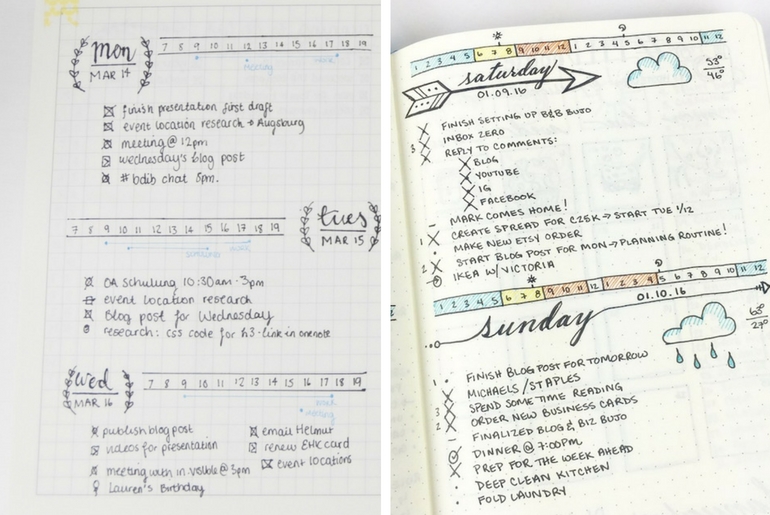 mon
MAR 14
7 8 9 10 11 12 13 14 15 16 17 18 19
meeting
finish presentation first draft
event location research → Augsburg
meeting @ 12pm
wednesday's blog post
#bdib chat 5pm.
7 8 9 10 11 12 13 14 15 16 17 18 19
work
tues
MAR 15
OA Schulung 10:30am - 3pm
event location research
Blog post for Wednesday
research: css code for h3-link in onenote
Wed
MAR 16
7 8 9 10 11 12 13 14 15 16 17 18 19
work
meeting
publish blog post
videos for presentation
meeting with @ 5pm
Lauren's Birthday
email Helmut
renew card
event locations
1 2 3 4 5 6 7 8 9 10 11 12 1 2 3 4 5 6 7 8 9 10 11 12
saturday
01.09.16
53°
46°
FINISH SETTING UP B&B BUJO
INBOX ZERO
3 REPLY TO COMMENTS:
BLOG
YOUTUBE
IG
FACEBOOK
– MARK COMES HOME!
CREATE SPREAD FOR C25K → START TUE 1/12
1 MAKE NEW ETSY ORDER
2 START BLOG POST FOR MON → PLANNING ROUTINE!
IKEA W/ VICTORIA
1 2 3 4 5 6 7 8 9 10 11 12 1 2 3 4 5 6 7 8 9 10 11 12
Sunday
01.10.16
63°
27°
1 · FINISH BLOG POST FOR TOMORROW
MICHAELS / STAPLES
3 SPEND SOME TIME READING
2 ORDER NEW BUSINESS CARDS
– FINALIZED BLOG & BIZ BUJO
DINNER @ 7:00PM
PREP FOR THE WEEK AHEAD
· DEEP CLEAN KITCHEN
· FOLD LAUNDRY